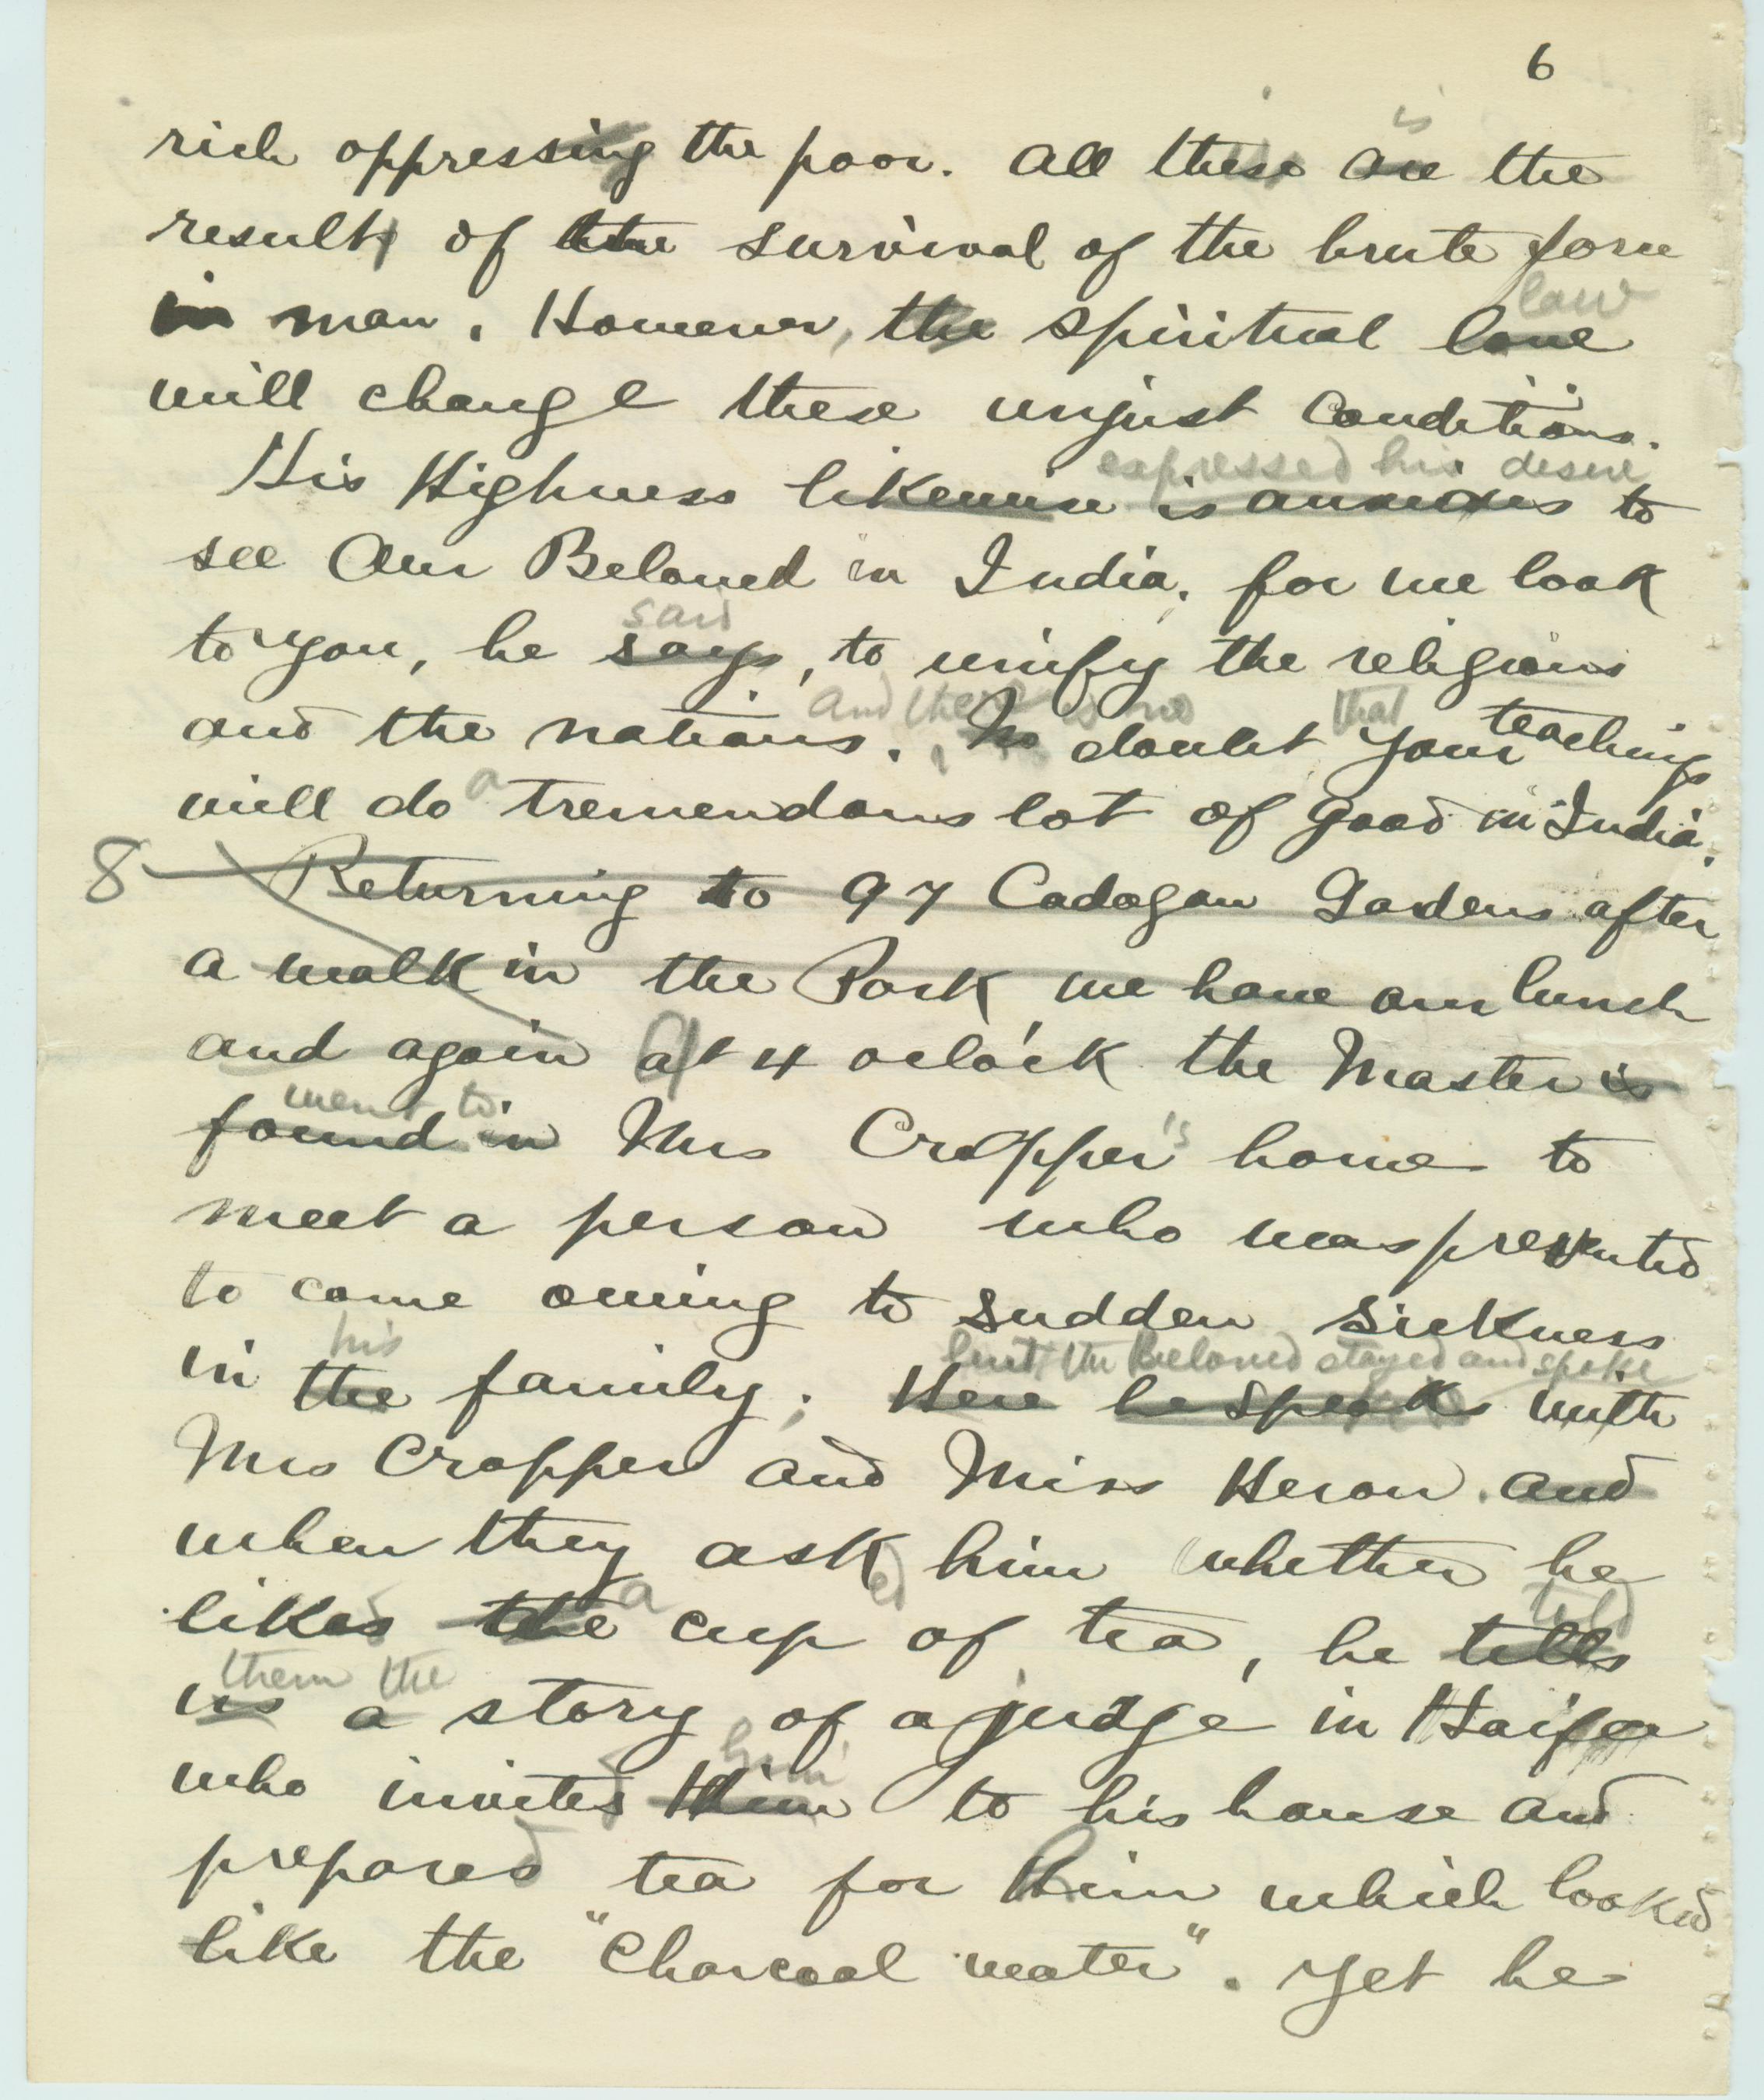 6
is
rich oppressing the poor. All these are the
result of the survival of the brute force
law
in man. However, the spiritual love
will change these unjust conditions.
expressed his desire
His Highness likewise is anxious to
see Our Beloved in India, for we look
said
to You, he says, to unify the religions
and there is no that
and the nations. No doubt your teachings
will do a tremendous lot of good in India.
8 Returning to 97 Cadogan Gardens after
a walk in the Park we have our lunch
and again at 4 oclock the Master is
went to
found in Mrs Cropper's home to
meet a person who was prevented
to come owing to sudden sickness
his but the Beloved stayed and spoke
in the family. Here he speaks with
Mrs Cropper and Miss Heron and
when they asked him whether he
a told
likes the cup of tea, he tells
them the
us a story of a judge in Haifa
him
who invited Him to his house and
prepared tea for him which looked
like the "Charcoal water". Yet he